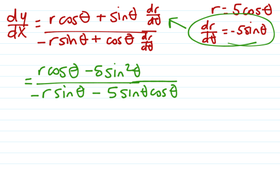 dy/dx = (r cosθ + sinθ dr/dθ) / (-r sinθ + cosθ dr/dθ)
r = 5cosθ
dr/dθ = -5sinθ
= (r cosθ - 5 sin²θ) / (-r sinθ - 5 sinθ cosθ)